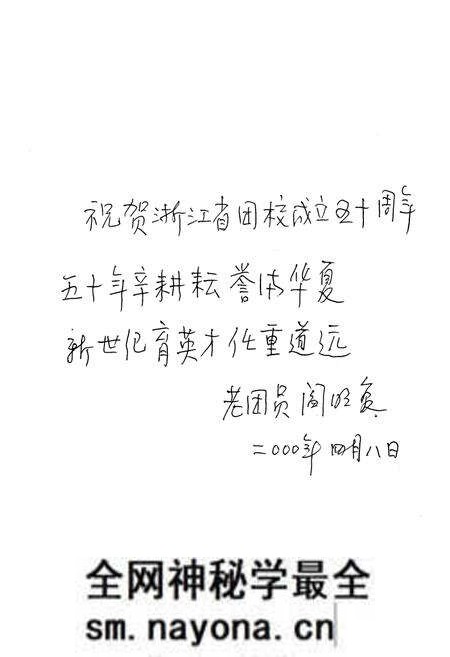 祝贺浙江省团校成立五十周年
五十年辛耕耘誉满华夏
新世纪育英才任重道远
老团员 阎明复
二〇〇〇年四月八日
全网神秘学最全
sm.nayona.cn